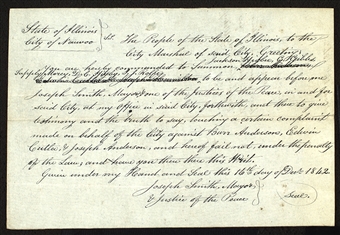 State of Illinois
City of Nauvoo
Sct. The People of the State of Illinois, to the
City Marshal of said City, Greeting
You are hereby commanded to Summon
to be and appear before me
Joseph Smith, Mayor, & one of the Justices of the Peace, in and for
said City, at my office in said City, forthwith, and then to give
testimony and the truth to say, touching a certain complaint
made on behalf of the City against Benj. Anderson, Edwin
Cutler, & Joseph Anderson, and hereof fail not, under the penalty
of the Law, and have you then there this Writ.
Given under my Hand and Seal this 14th day of Decr. 1842.
Joseph Smith, Mayor,
& Justice of the Peace
Seal